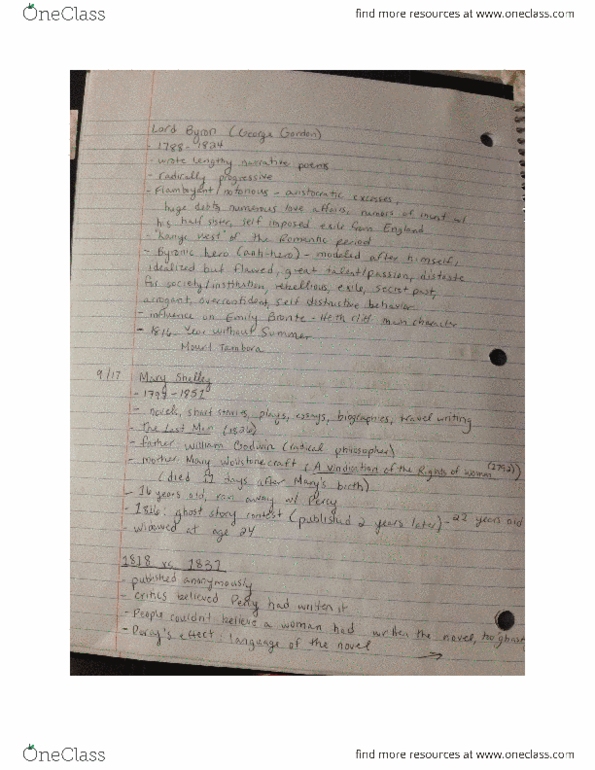 OneClass
find more resources at www.oneclass.com
Lord Byron (George Gordon)
- 1788-1824
- wrote lengthy narrative poems
- radically progressive
- Flamboyent/notorious - aristocratic excesses,
huge debts, numerous love affairs, rumors of incest w/
his half sister, self imposed exile from England
of the Romantic period
- Byronic hero (anti-hero) - modeled after himself,
idealized but flawed, great talent/passion, distaste
for society/institution, rebellious, exile, secret past,
arrogant, overconfident, self distructive behavior
- influence on Emily Bronte - main character
- 1816 Year without Summer
Mount Tambora
9/17 Mary Shelley
- 1797-1851
- novels, short stories, plays, essays, biographies, travel writing
- The Last Man (1826)
- father: William Godwin (radical philosopher)
- mother: Mary Wolstonecraft (A Vindication of the Rights of Woman
(died days after Mary's birth)
- 16 years old, ran away w/ Percy
- 1816: ghost story contest (published 2 years later) - years old
- widowed at age 24
1818 vs. 1831
- published anonymously
- critics believed Percy had written it
- People couldn't believe a woman had written the novel,
- Percy's effect: language of the novel →
OneClass
find more resources at www.oneclass.com